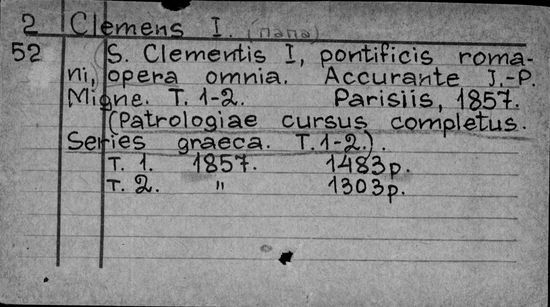 2 Clemens I. (папа)
52 S. Clementis I, pontificis roma-
ni, opera omnia. Accurante J.-P.
Migne. T. 1-2. Parisiis, 1857.
(Patrologiae cursus completus.
Series graeca. T. 1-2.).
T. 1. 1857. 1483p.
T. 2. " 1303p.